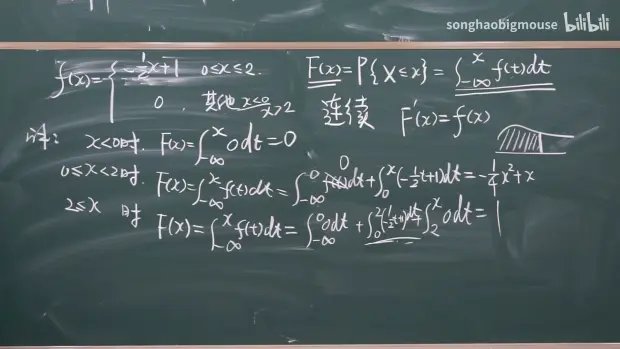 songhaobigmouse bilibili
f(x)={ -1/2x+1 0≤x≤2. F(x)=P{X≤x}=∫_{-∞}^{x} f(t)dt
0, 其他 x<0 x>2 连续 F'(x)=f(x)
解: x<0时. F(x)=∫_{-∞}^{x} 0dt=0
0≤x<2时. F(x)=∫_{-∞}^{x} f(t)dt=∫_{-∞}^{0} 0 dt+∫_{0}^{x}(-1/2t+1)dt=-1/4x²+x
2≤x 时 F(x)=∫_{-∞}^{x} f(t)dt=∫_{-∞}^{0} 0dt+∫_{0}^{2}(-1/2t+1)dt+∫_{2}^{x} 0dt=1